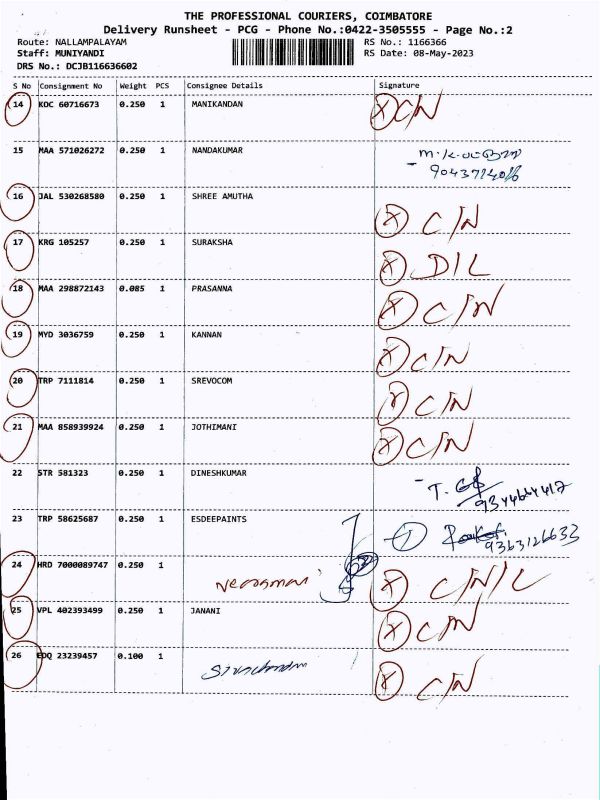 THE PROFESSIONAL COURIERS, COIMBATORE
Delivery Runsheet - PCG - Phone No.:0422-3505555 - Page No.:2
Route: NALLAMPALAYAM RS No.: 1166366
Staff: MUNIYANDI RS Date: 08-May-2023
DRS No.: DCJB116636602
S No Consignment No Weight PCS Consignee Details Signature
14 KOC 60716673 0.250 1 MANIKANDAN X C/N
15 MAA 571026272 0.250 1 NANDAKUMAR
16 JAL 530268580 0.250 1 SHREE AMUTHA X C/N
17 KRG 105257 0.250 1 SURAKSHA X D/L
18 MAA 298872143 0.085 1 PRASANNA X C/N
19 MYD 3036759 0.250 1 KANNAN X C/N
20 TRP 7111814 0.250 1 SREVOCOM X C/N
21 MAA 858939924 0.250 1 JOTHIMANI X C/N
22 STR 581323 0.250 1 DINESHKUMAR
23 TRP 58625687 0.250 1 ESDEEPAINTS 9363126633
24 HRD 7000089747 0.250 1 X C/N/L
25 VPL 402393499 0.250 1 JANANI X C/N
26 EDQ 23239457 0.100 1 X C/N